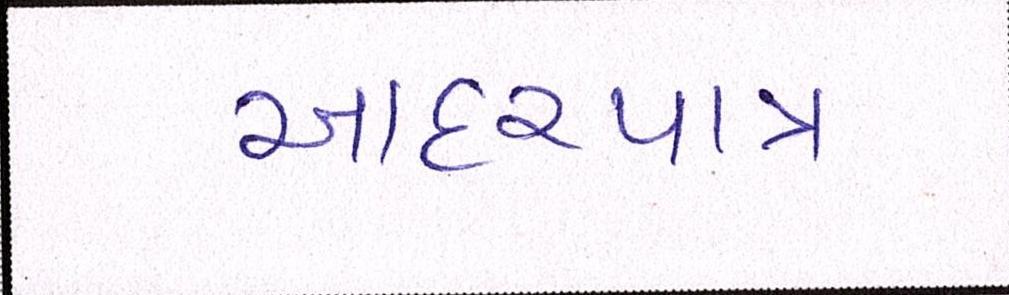 આદરપાત્ર